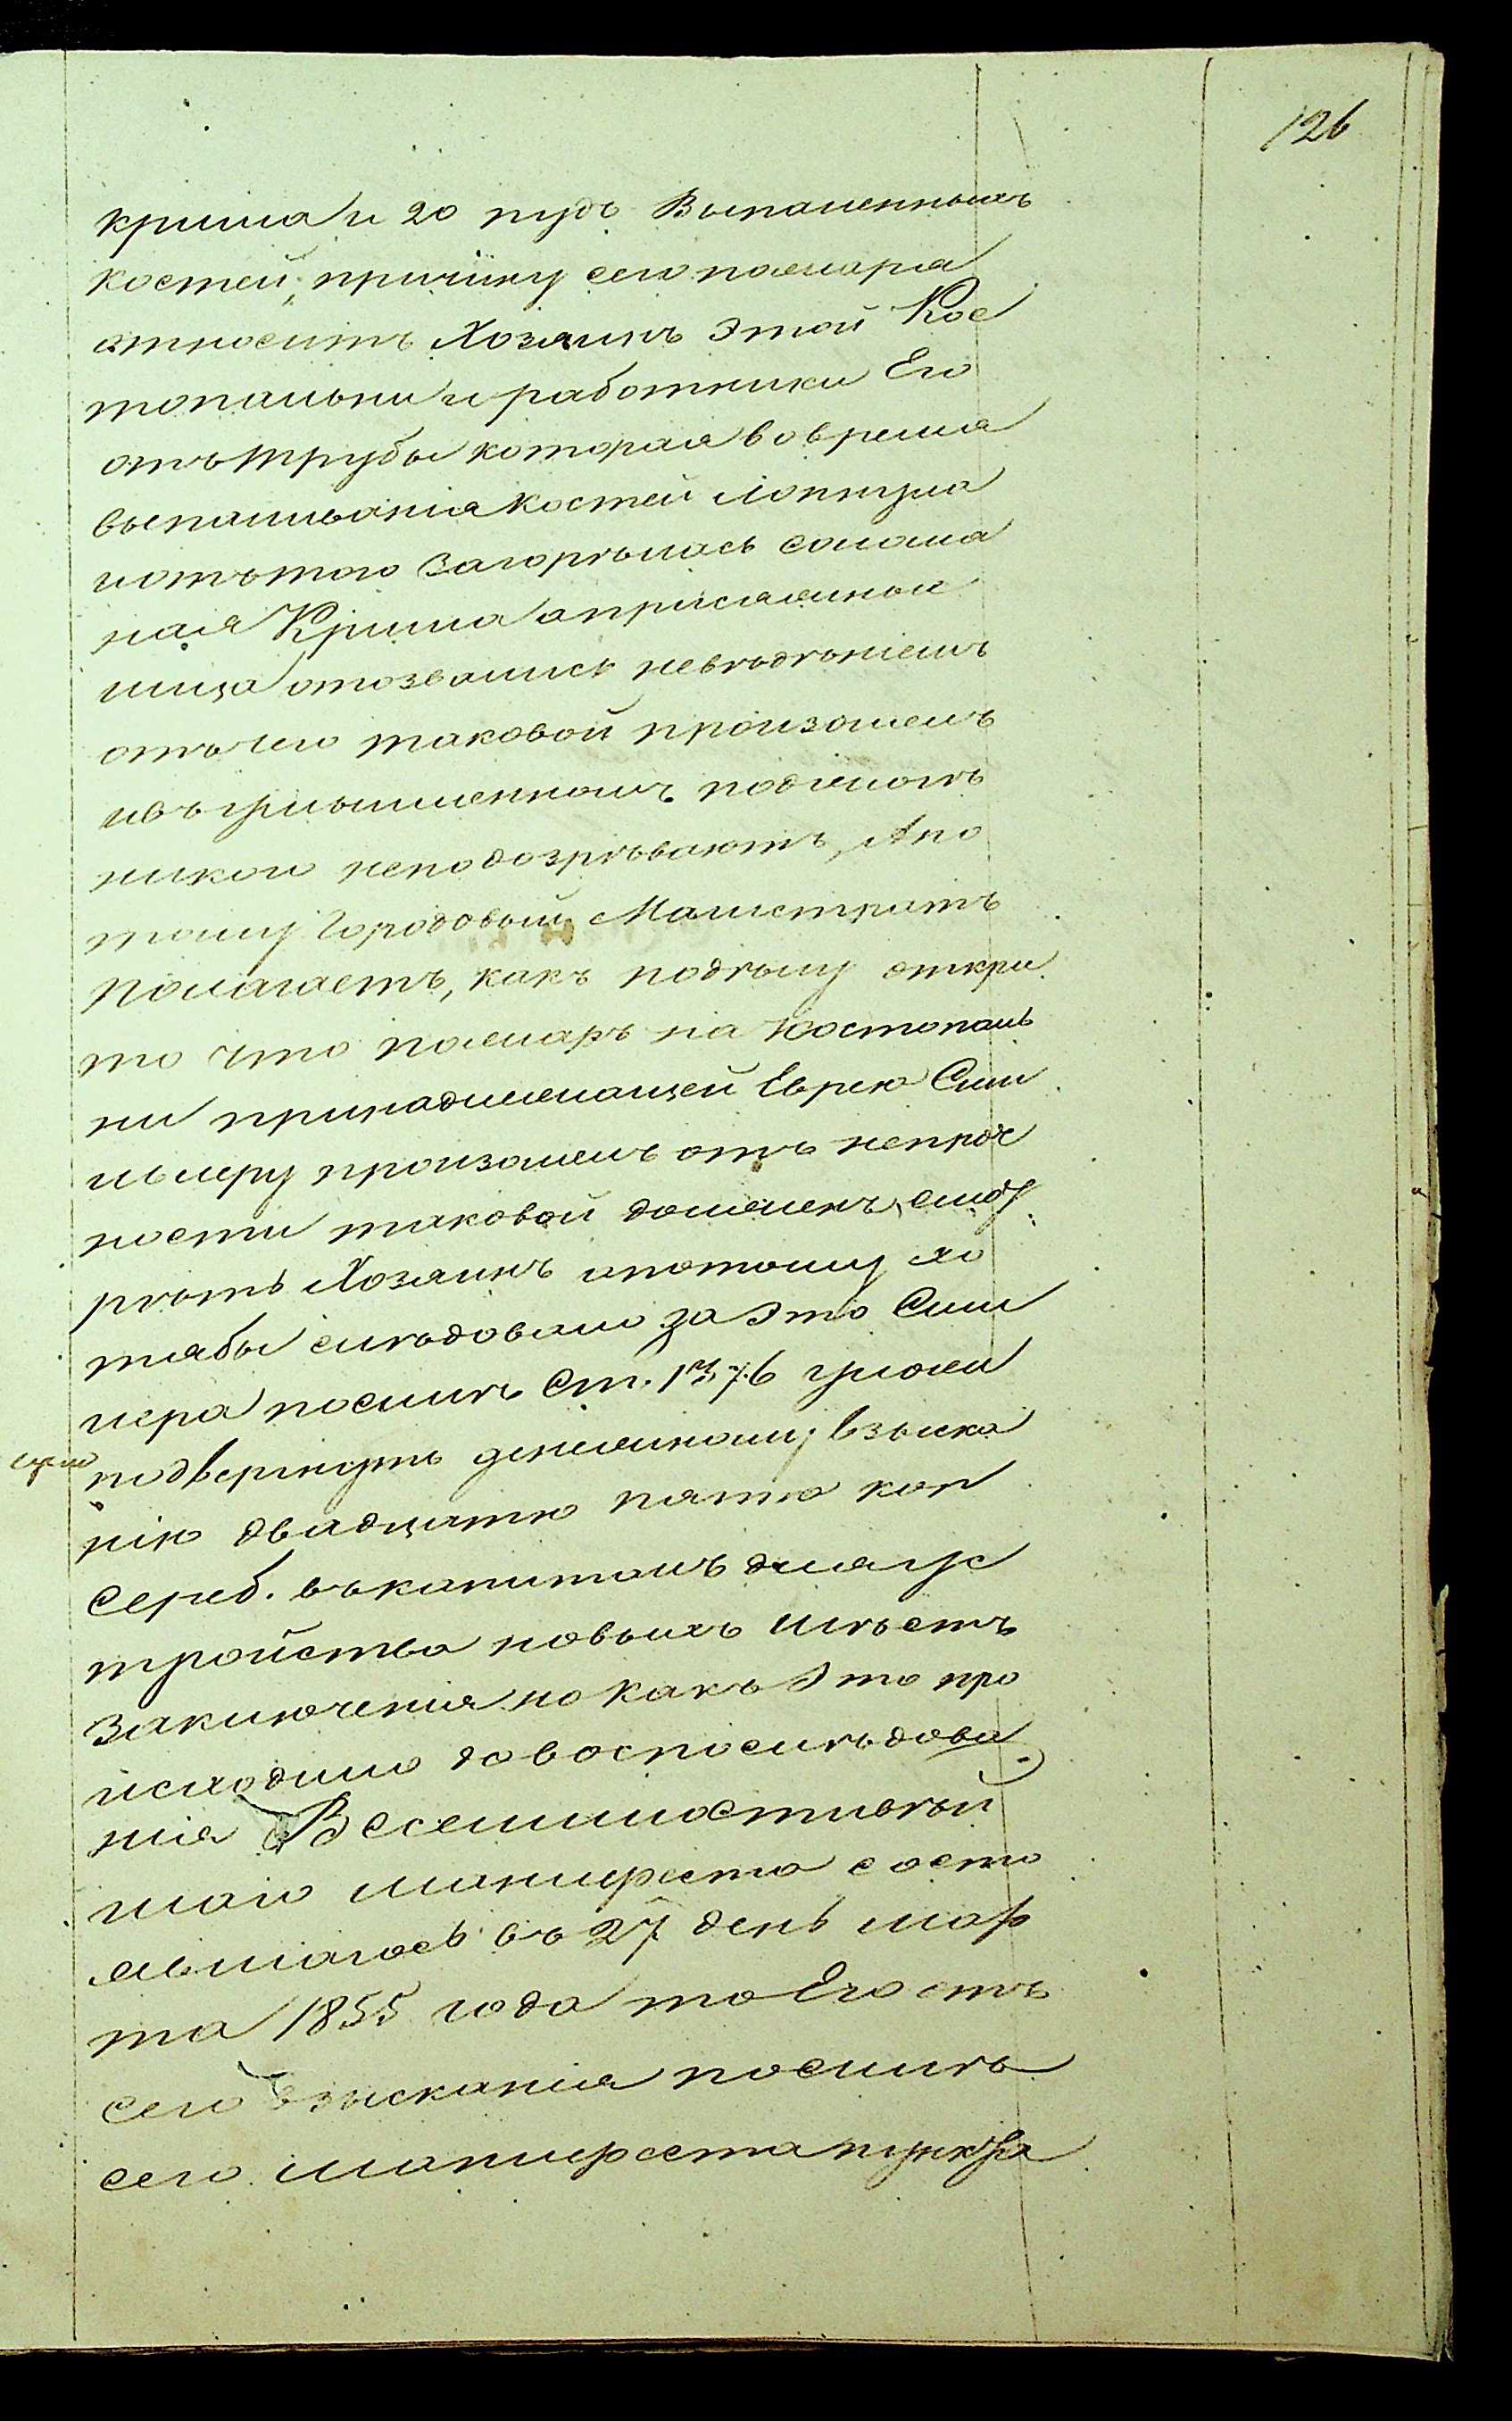 126
криша и 20 пудъ выпаленныхъ
костей, причину сего пожара
относитъ Хозяинъ этой Кос
топальни и работники Его
отъ трубы которая вовремя
выпаливанія костей лопнула
иотътого загорѣлась соломя
ная Криша априсяжные
лица отозвались невѣдѣніемъ
отъ чего таковой произошелъ
ивъ умышленномъ поджогѣ
никого неподозрѣваютъ, Апо
тому Городовый Магистратъ
Полагаетъ, какъ подѣлу откри
то что пожаръ на Костопаль
ни принадлежащей Еврею Сим
произошелъ отъ непроч
ности таковой долженъ смот
рѣть Хозяинъ апотому хо
тябы слѣдовало за Это Сим
посилѣ Ст. 1376 улож
подвергнуть денежному взыска
нію двадцатю пятю коп
сереб. въкапиталъ дляус
тройства новыхъ мѣстъ
заключенія но какъ Это про
исходило довоспослѣдова
нія Всемилостивѣй
шаго манифеста состо
явшагось въ 27 день мар
та 1855 года то Его отъ
сего взысканія посилѣ
сего манифеста пункта